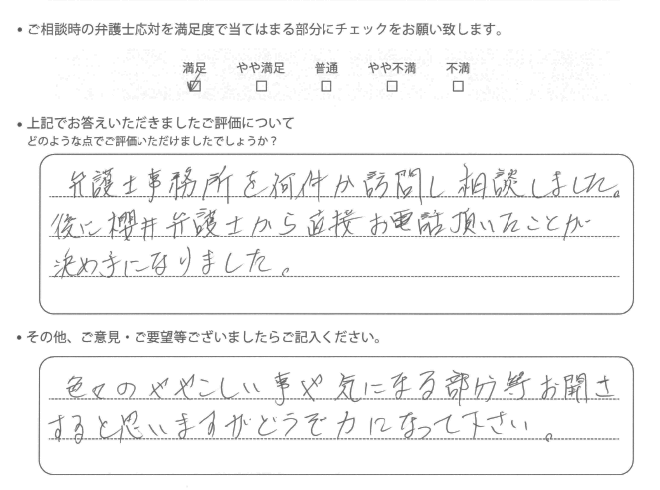 • ご相談時の弁護士応対を満足度で当てはまる部分にチェックをお願い致します。
満足 やや満足 普通 やや不満 不満
• 上記でお答えいただきましたご評価について
どのような点でご評価いただけましたでしょうか？
弁護士事務所を何件か訪問し相談しました。
後に櫻井弁護士から直接お電話頂いたことが
決めきになりました。
• その他、ご意見・ご要望等ございましたらご記入ください。
色々のややこしい事や気になる部分等お聞さ
すると思いますがどうぞ力になって下さい。